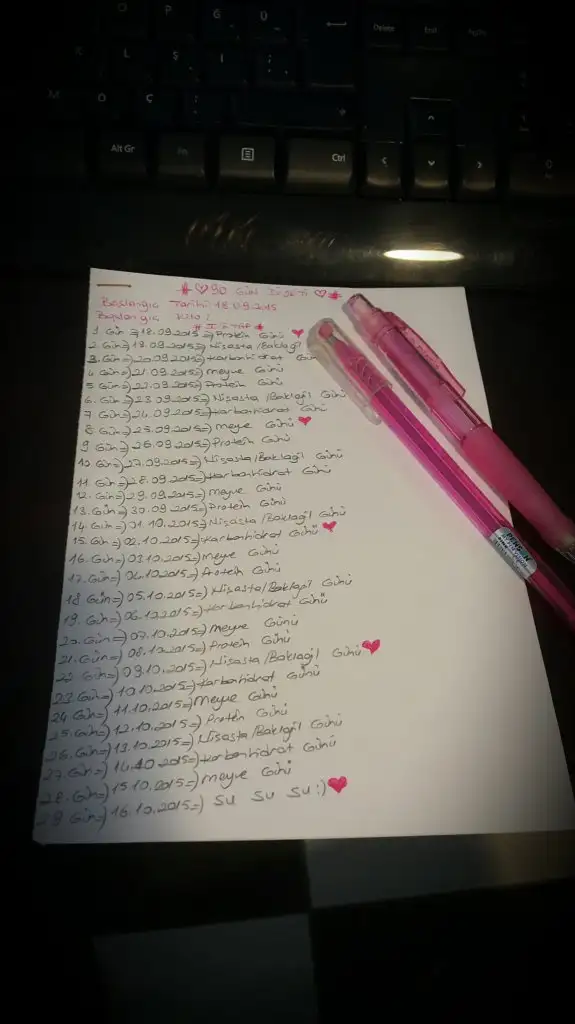 O P Ğ Ü Delete End
K L Ş İ
M Ö Ç
Alt Gr Fn Ctrl
90 Gün
Başlangıç Tarihi 18.09.2015
Başlangıç Kilo:
1. Gün => 18.09.2015 => Protein Günü
2. Gün => 19.09.2015 => Nişasta/Baklagil
3. Gün => 20.09.2015 => Karbonhidrat Gün
4. Gün => 21.09.2015 => Meyve Günü
5. Gün => 22.09.2015 => Protein Günü
6. Gün => 23.09.2015 => Nişasta/Baklagil Günü
7. Gün => 24.09.2015 => Karbonhidrat Günü
8. Gün => 25.09.2015 => Meyve Günü ♥
9. Gün => 26.09.2015 => Protein Günü
10. Gün => 27.09.2015 => Nişasta/Baklagil Günü
11. Gün => 28.09.2015 => Karbonhidrat Günü
12. Gün => 29.09.2015 => Meyve Günü
13. Gün => 30.09.2015 => Protein Günü
14. Gün => 01.10.2015 => Nişasta/Baklagil Günü
15. Gün => 02.10.2015 => Karbonhidrat Günü ♥
16. Gün => 03.10.2015 => Meyve Günü
17. Gün => 04.10.2015 => Protein Günü
18. Gün => 05.10.2015 => Nişasta/Baklagil Günü
19. Gün => 06.10.2015 => Karbonhidrat Günü
20. Gün => 07.10.2015 => Meyve Günü
21. Gün => 08.10.2015 => Protein Günü
22. Gün => 09.10.2015 => Nişasta/Baklagil Günü ♥
23. Gün => 10.10.2015 => Karbonhidrat Günü
24. Gün => 11.10.2015 => Meyve Günü
25. Gün => 12.10.2015 => Protein Günü
26. Gün => 13.10.2015 => Nişasta/Baklagil Günü
27. Gün => 14.10.2015 => Karbonhidrat Günü
28. Gün => 15.10.2015 => Meyve Günü
29. Gün => 16.10.2015 => SU SU SU :) ♥
PENSAN